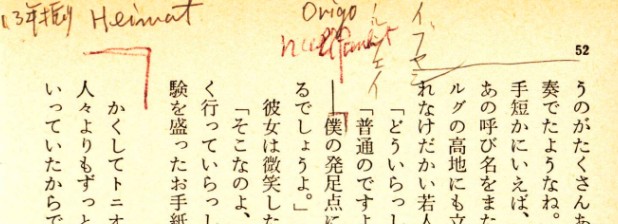 13年振り Heimat
Origo
イブセン
52
うのがたくさんあ
奏でたようなね。
手短かにいえば、
あの呼び名をまた
ルダの高地にも立
れなけだかい若人
「どういらっし
「普通のですよ
――僕の発足点に
るでしょうよ。」
彼女は微笑した
「そこなのよ、
く行っていらっし
験を盛ったお手紙
かくしてトニオ
人々よりもずっと
いっていたからで